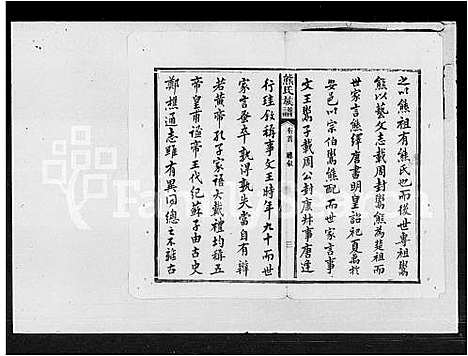 之以熊祖有熊氏也而後世專祖鬻
熊以藝文志載周封鬻熊為楚祖而
世家言熊繹唐書明皇詔祀夏禹於
安邑以宗伯鬻熊配而世家言事
文王鬻子載周公封康叔事唐逢
熊氏族譜 卷首 三
行珪敘稱事文王時年九十而世
家言蚤卒孰得孰失當自有辯
若黃帝孔子家語大戴禮均稱五
帝皇甫謐帝王代紀蘇子由古史
鄭樵通志雖有異同總之不離古